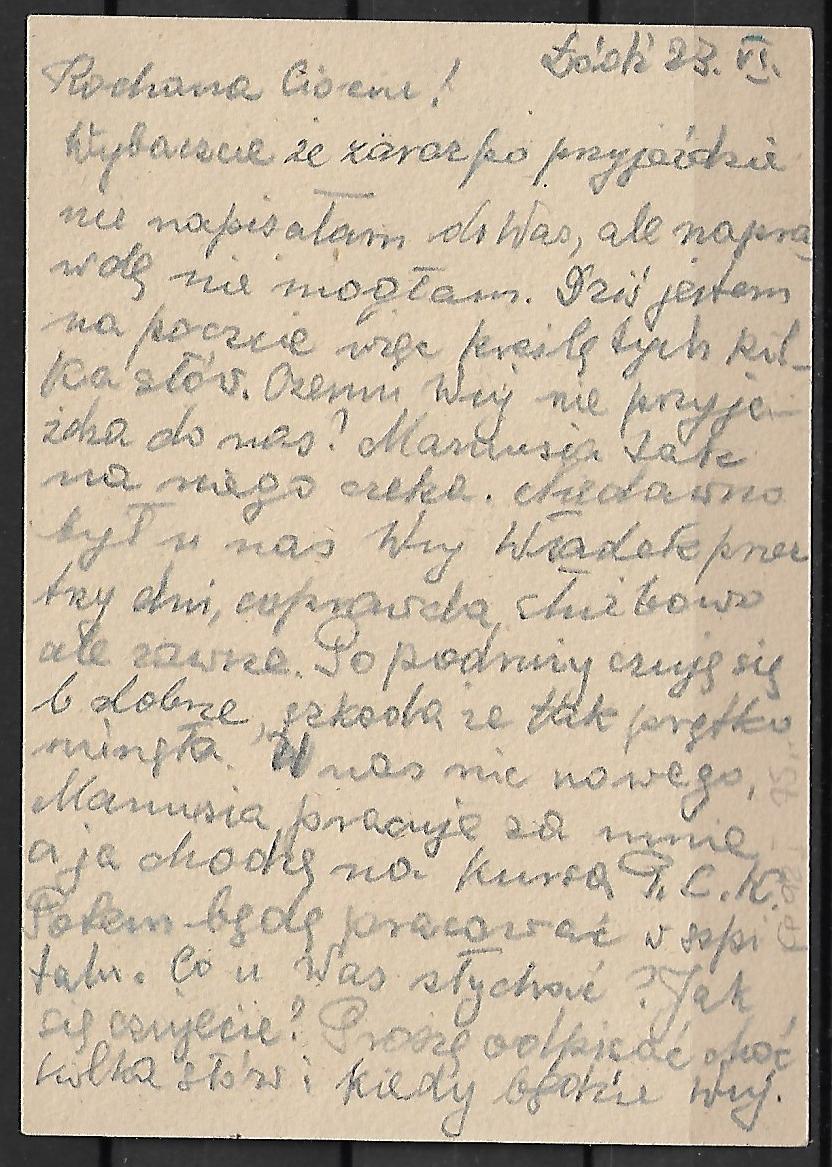 Łódź 23. VI.
Kochana Ciociu!
Wybaczcie że zaraz po przyjeździe
nie napisałam do Was, ale napra
wdę nie mogłam. Dziś jestem
na poczcie więc kreślę tych kil-
ka słów. Czemu Wuj nie przyje-
żdża do nas? Mamusia tak
na niego czeka. Niedawno
był u nas Wuj Władek przez
trzy dni, coprawda, służbowo
ale zawsze. Po podróży czuję się
b dobrze, szkoda że tak prętko
minęła. U nas nic nowego,
Mamusia pracuje za mnie
a ja chodzę na kursa P.C.K.
Potem będę pracować w szpi
talu. Co u Was słychać? Jak
się czujecie? Proszę odpisać choć
kilka słów i kiedy będzie Wuj.
75,-